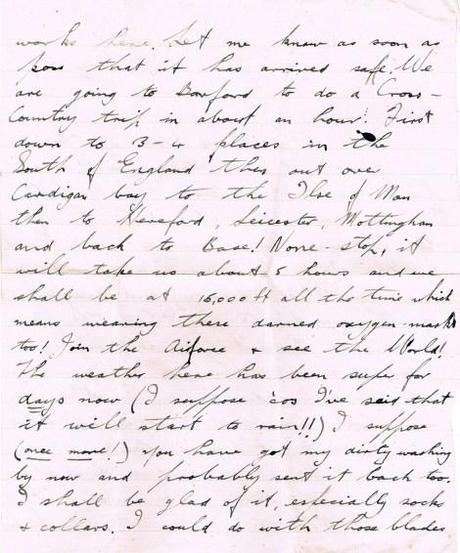 works here. Let me know as soon as
poss that it has arrived safe. We
are going to Barford to do a Cross-
Country trip in about an hour. First
down to 3-4 places in the
South of England then out over
Cardigan bay to the Ilse of Man
then to Hereford, Leicester, Nottingham
and back to Base! None-stop, it
will take us about 5 hours and we
shall be at 15,000 ft all the time which
means wearing these darned oxygen-masks
too! Join the Airforce & see the World!
The weather here has been supe for
days now (I suppose 'cos I've said that
it will start to rain!!) I suppose
(once more!) you have got my dirty washing
by now and probably sent it back too.
I shall be glad of it, especially socks
& collars. I could do with those blades